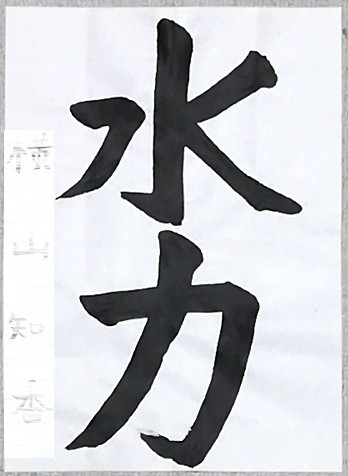 水力
横山知香